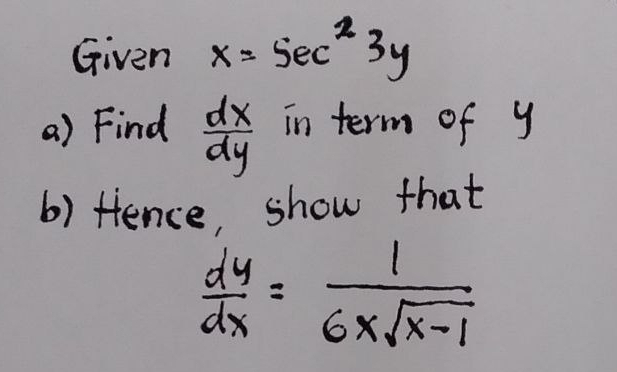 Given x = Sec² 3y
a) Find dx/dy in term of y
b) Hence, show that
dy/dx = 1/(6x√(x-1))